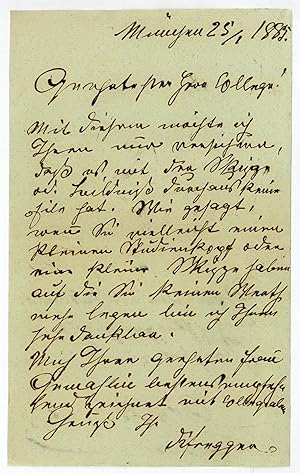 München 25/1 1885.
Geehrtester Herr College!
Mit diesem möchte ich
Ihnen nur versichern,
daß es mit der Skizze
od. Bildniß durchaus keine
Eile hat. Wie gesagt,
wenn Sie vielleicht einen
kleinen Studienkopf oder
eine kleine Skizze haben
auf die Sie keinen Werth
mehr legen bin ich Ihnen
sehr dankbar.
Mich Ihrer geehrten Frau
Gemahlin bestens empfeh-
lend zeichnet mit collegialem
Gruß Ihr
Defregger.